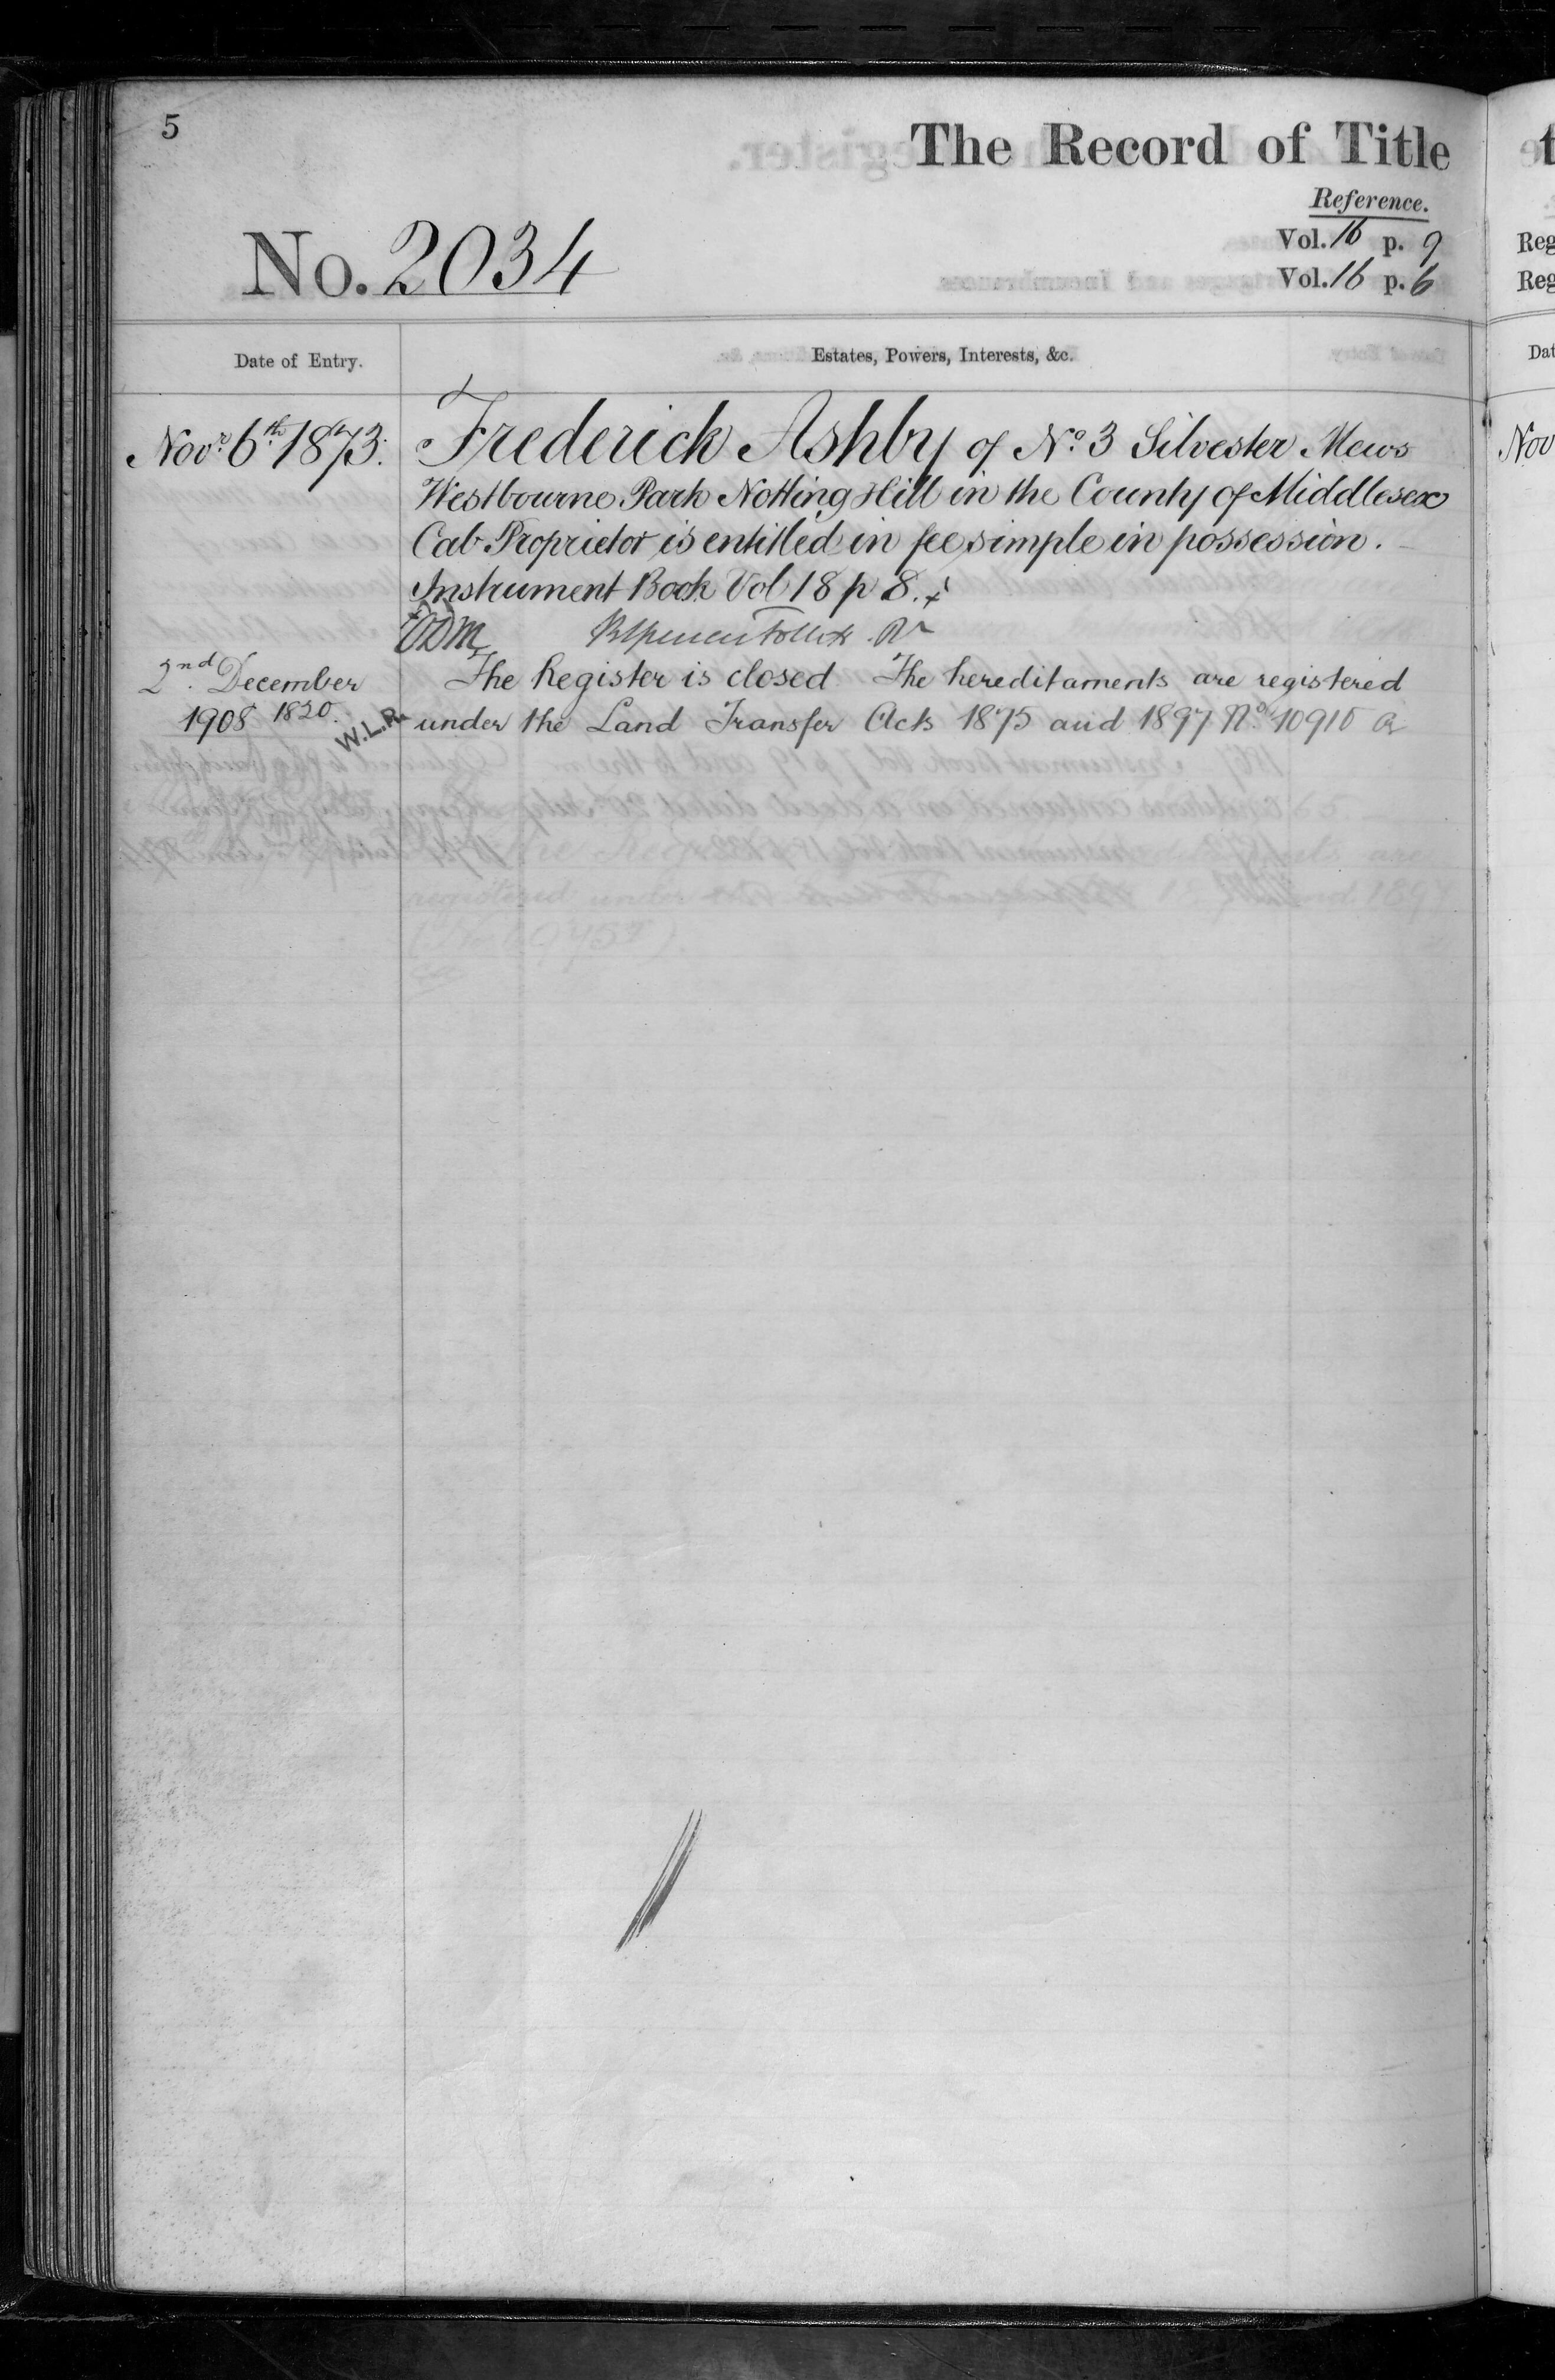 5
The Record of Title
Reference.
No. 2034
Vol. 16 p. 9
Vol. 16 p. 6
Date of Entry.
Estates, Powers, Interests, &c.
Novr. 6th 1873.
Frederick Ashby of No. 3 Silvester Mews
Westbourne Park Notting Hill in the County of Middlesex
Cab Proprietor is entitled in fee simple in possession.
Instrument Book Vol 18 p 8.
2nd. December
1908 1820.
W.L.R.
The Register is closed The hereditaments are registered
under the Land Transfer Acts 1875 and 1897 No. 10910
t
Reg
Reg
Dat
Nov